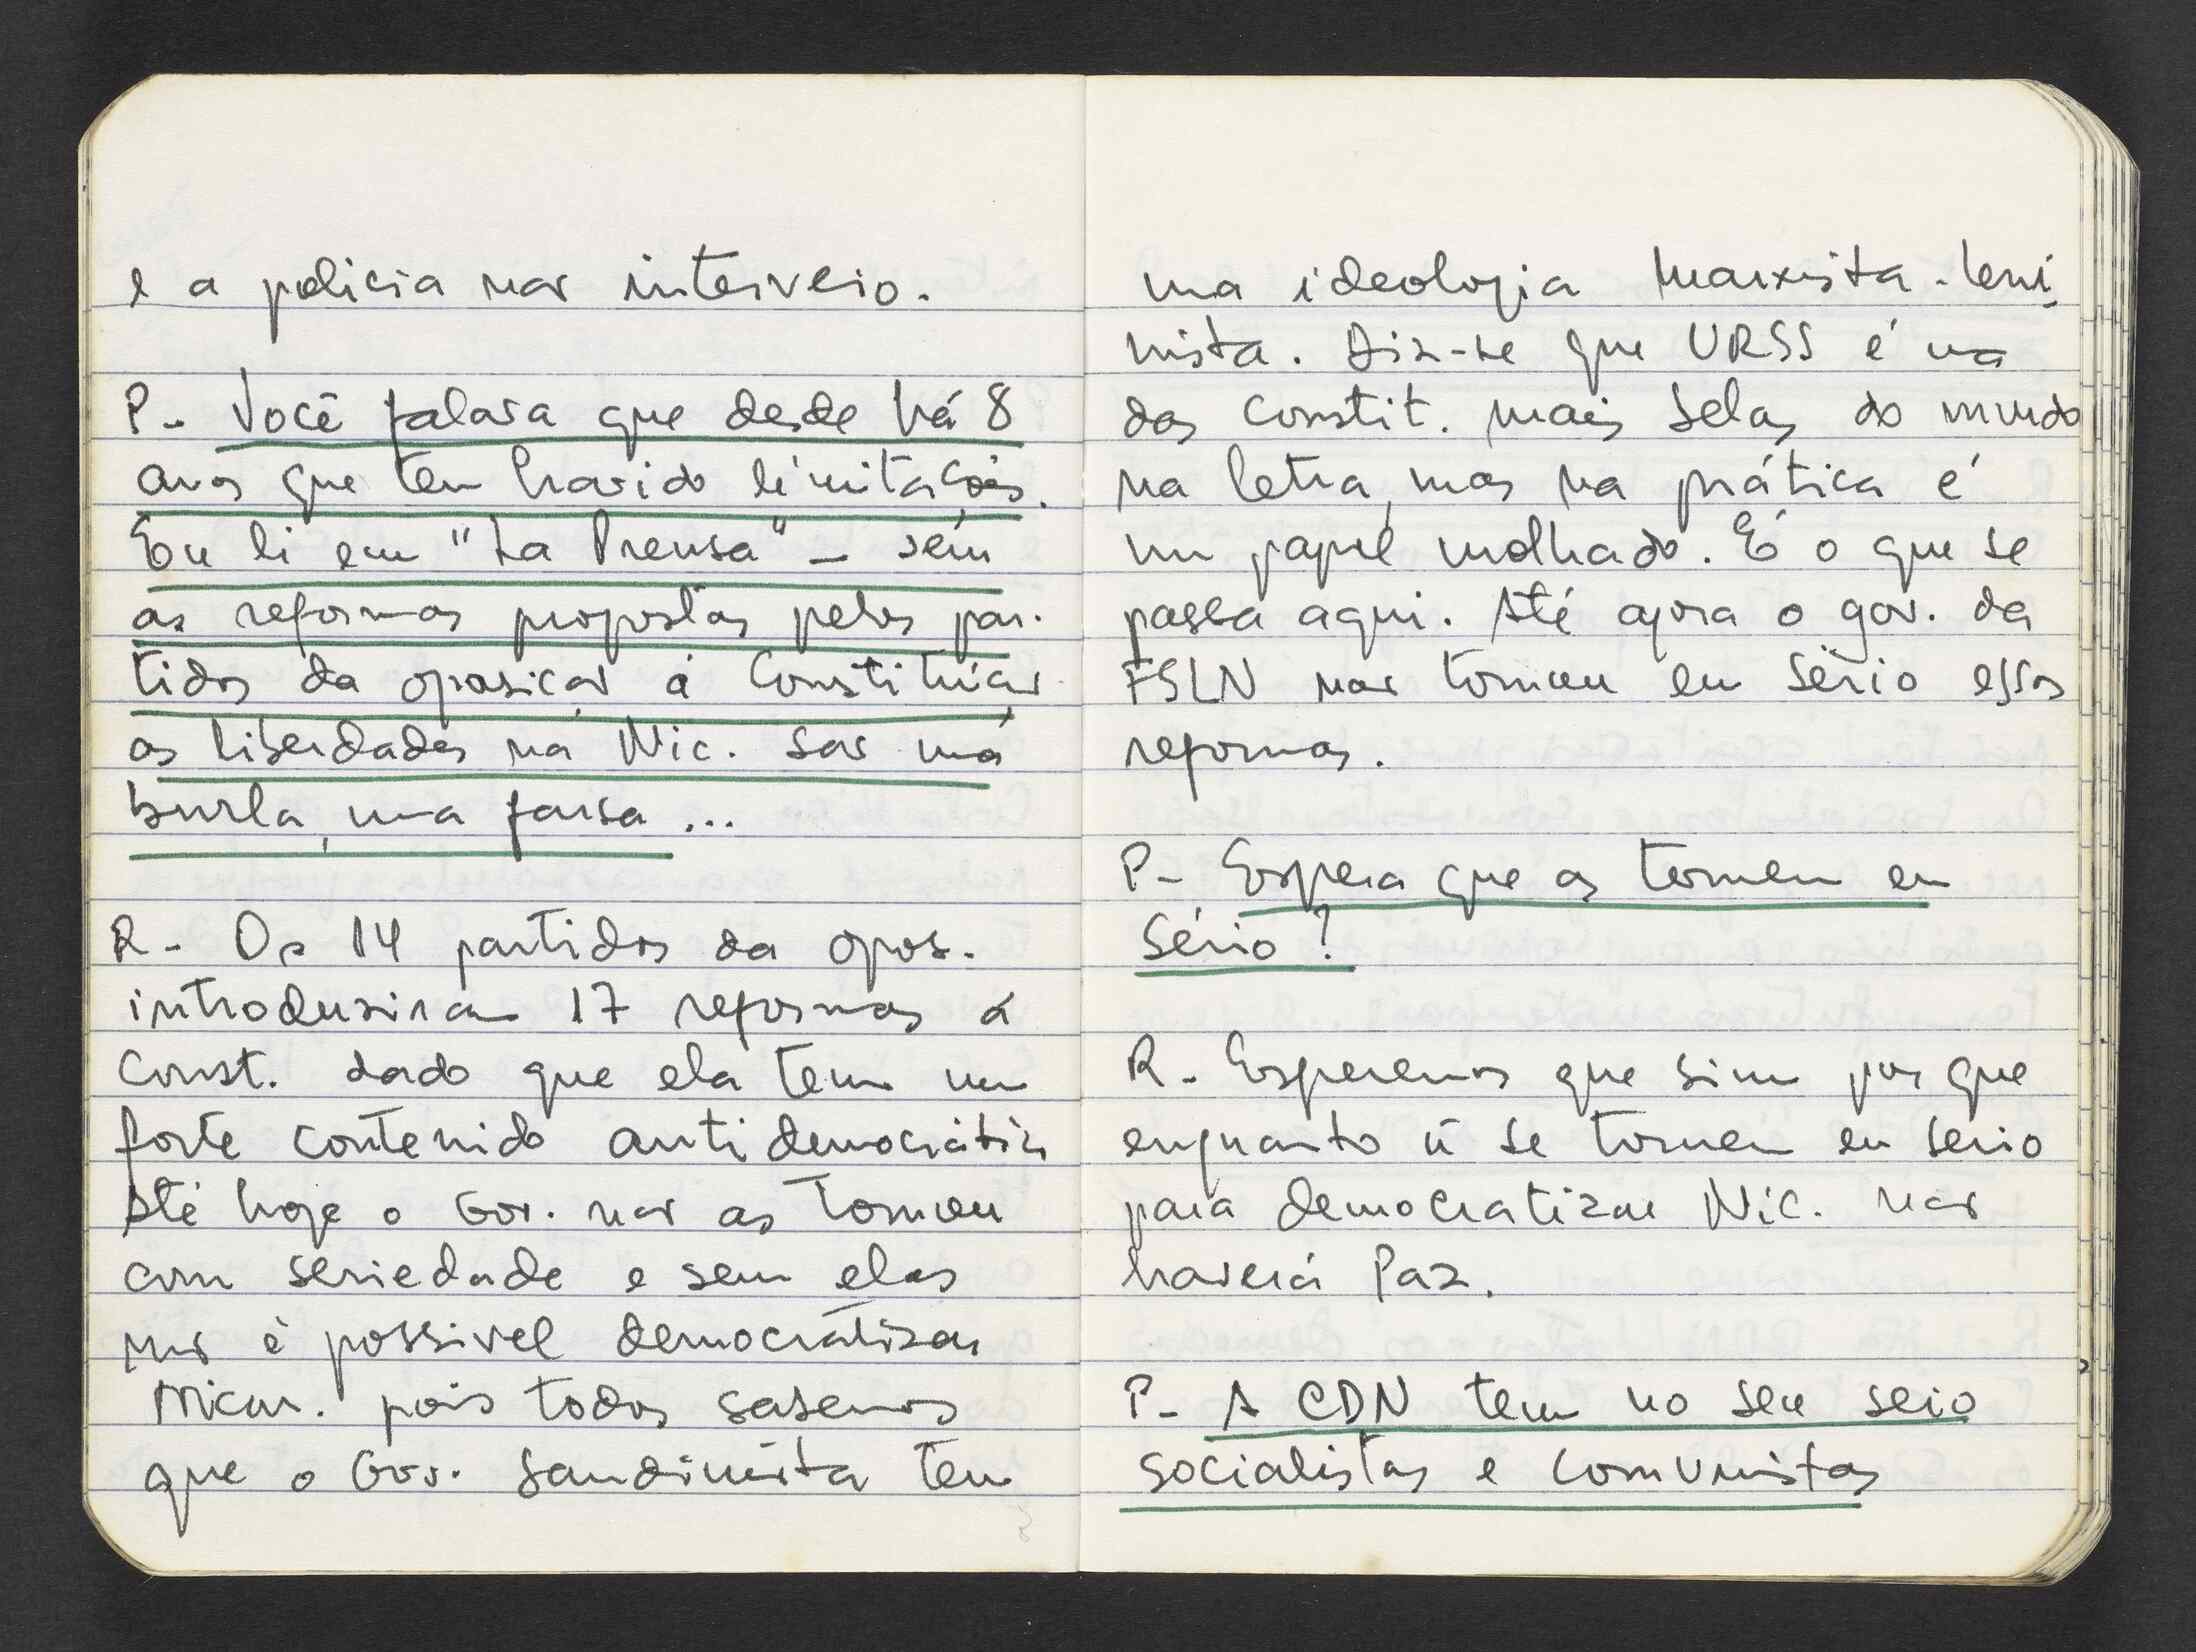 e a policia não interveio.
P- Você falava que desde há 8
anos que tem havido limitações.
Eu li em "La Prensa" - sem
as reformas propostas pelos par-
tidos da oposição á Constituição
as liberdades na Nic. são uma
burla, uma farsa ...
R- Os 14 partidos da opos.
introduziram 17 reformas á
Const. dado que ela tem um
forte contenido antidemocrático
Até hoje o Gov. não as tomou
com seriedade e sem elas
não é possivel democratizar
Nicar. pois todos sabemos
que o Gov. Sandinista tem
uma ideologia marxista-leni-
nista. Diz-se que URSS é uma
das Constit. mais belas do mundo
na letra, mas na prática é
um papel molhado. É o que se
passa aqui. Até agora o gov. da
FSLN não tomou em sério essas
reformas.
P- Espera que as tomem em
sério?
R- Esperemos que sim por que
enquanto ñ se tomem em serio
para democratizar Nic. não
haverá Paz.
P- A CDN tem no seu seio
socialistas e comunistas